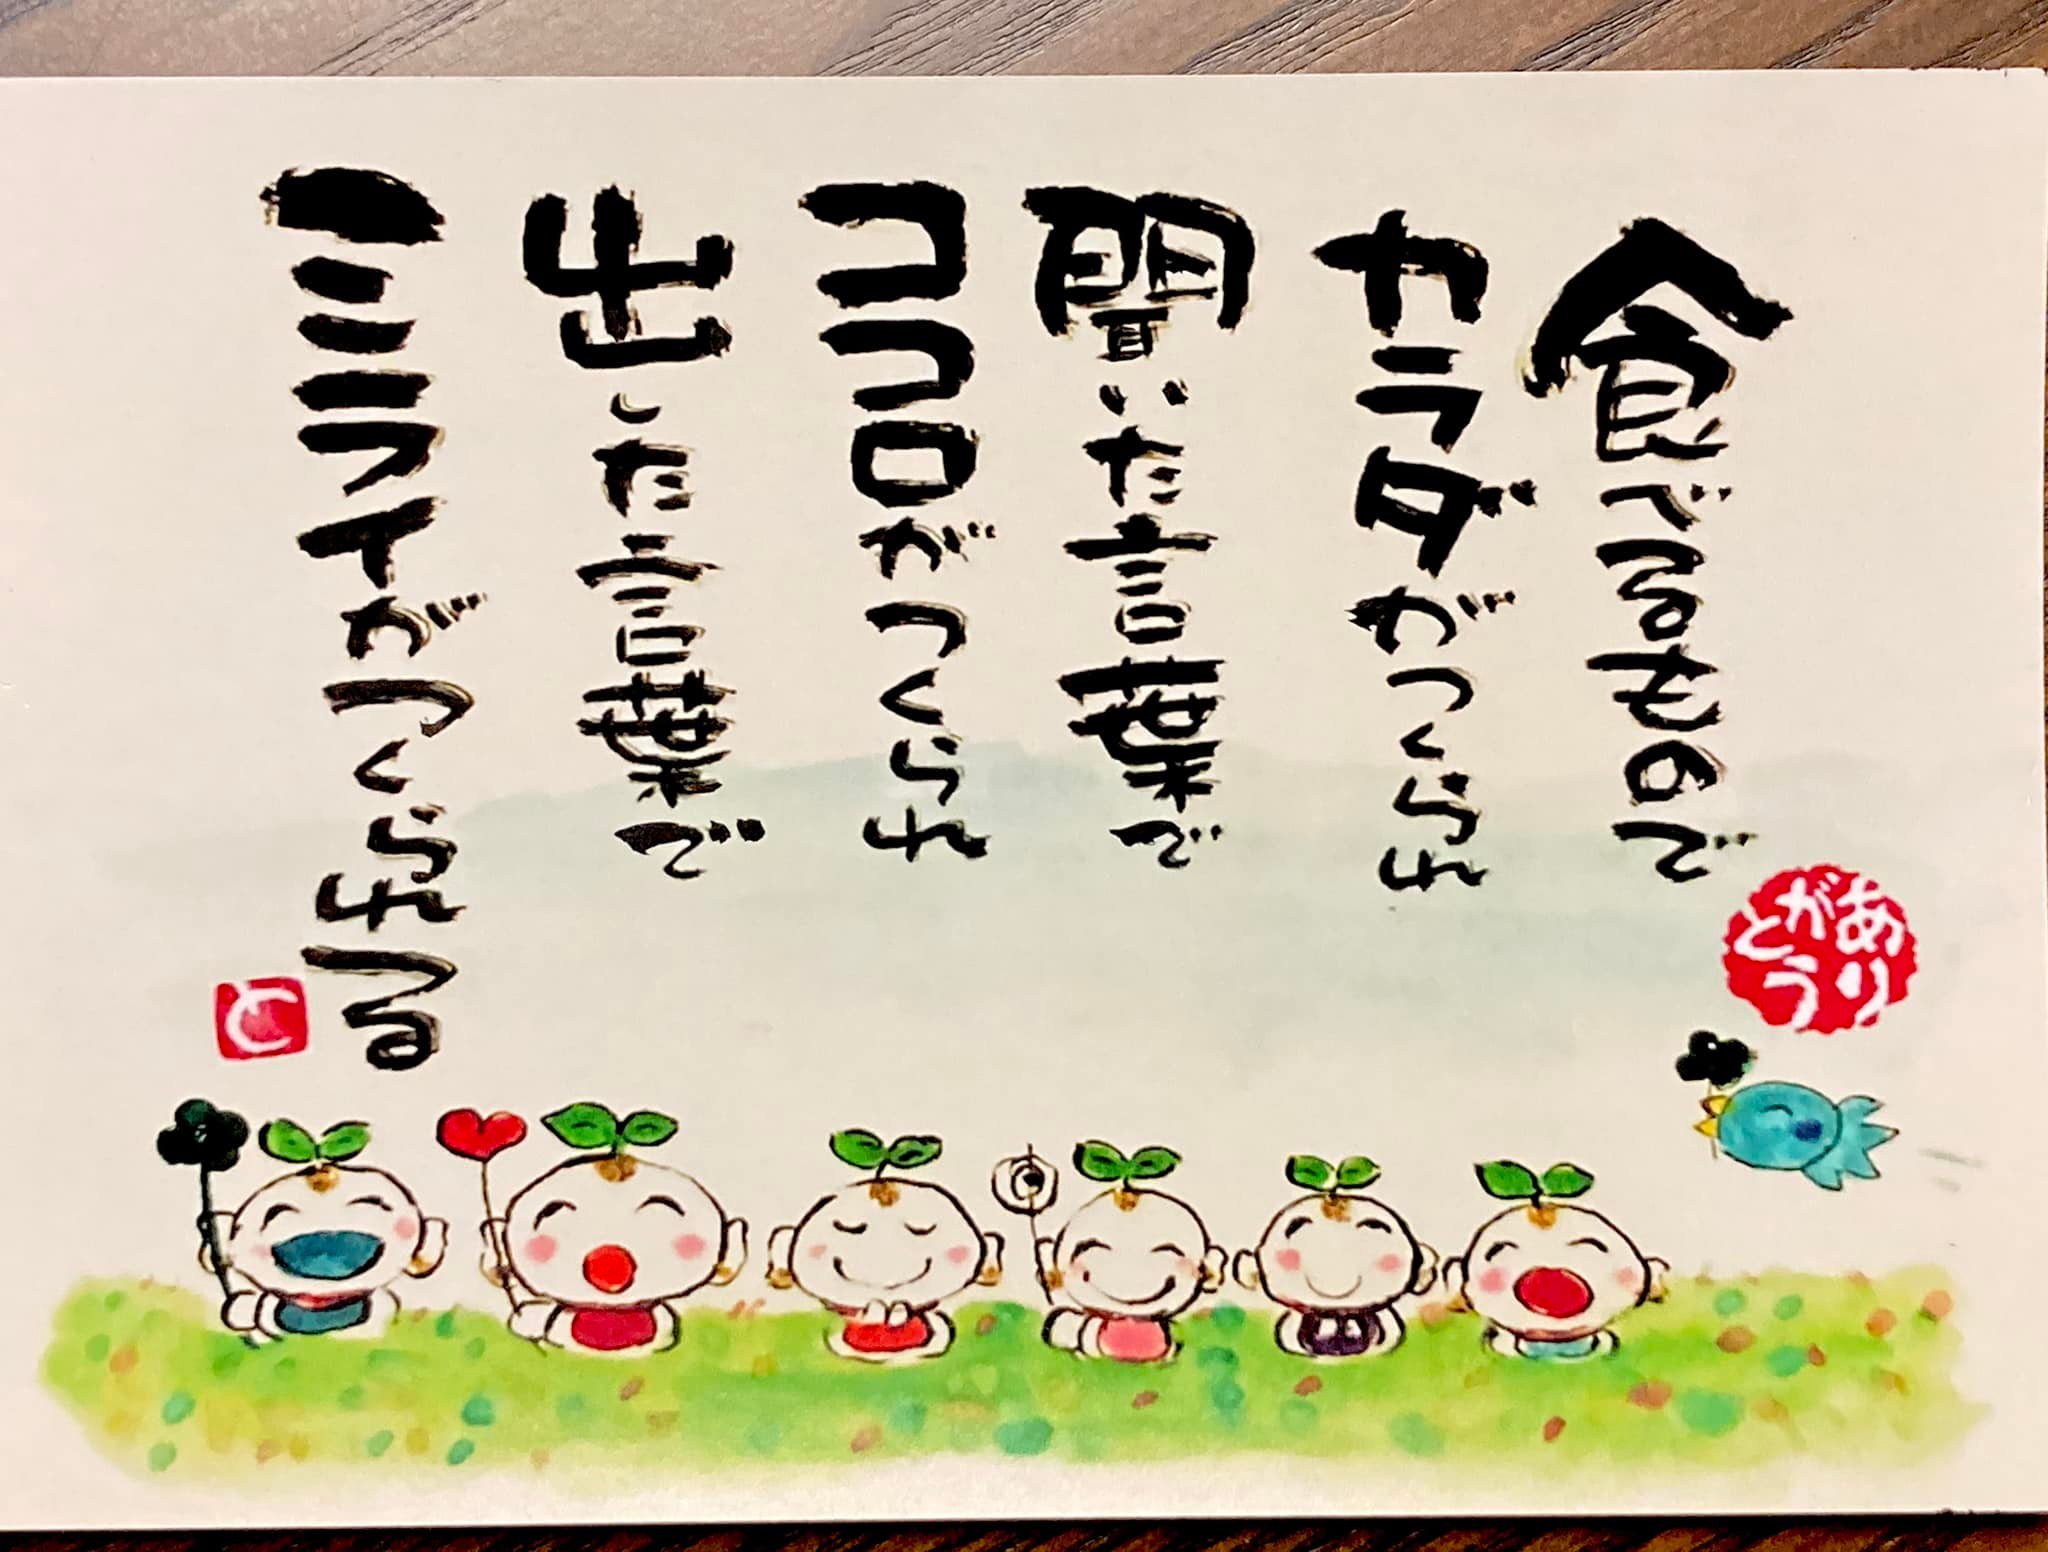 食べるもので
カラダがつくられ
聞いた言葉で
ココロがつくられ
出した言葉で
ミライがつくられる
ありがとう
と